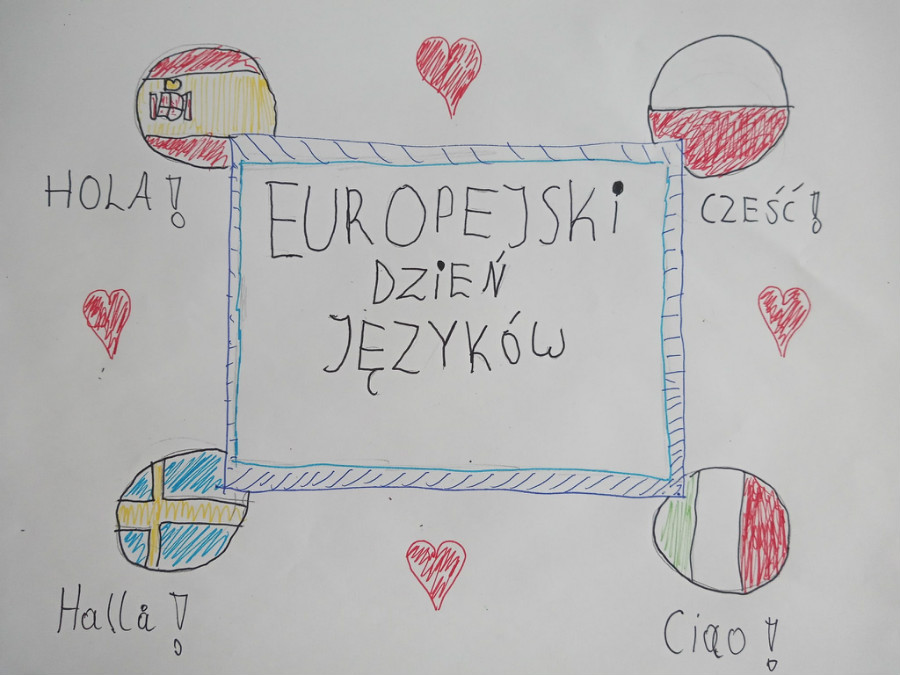 HOLA!
CZEŚĆ!
EUROPEJSKI
DZIEŃ
JĘZYKÓW
Hallå!
Ciąo!